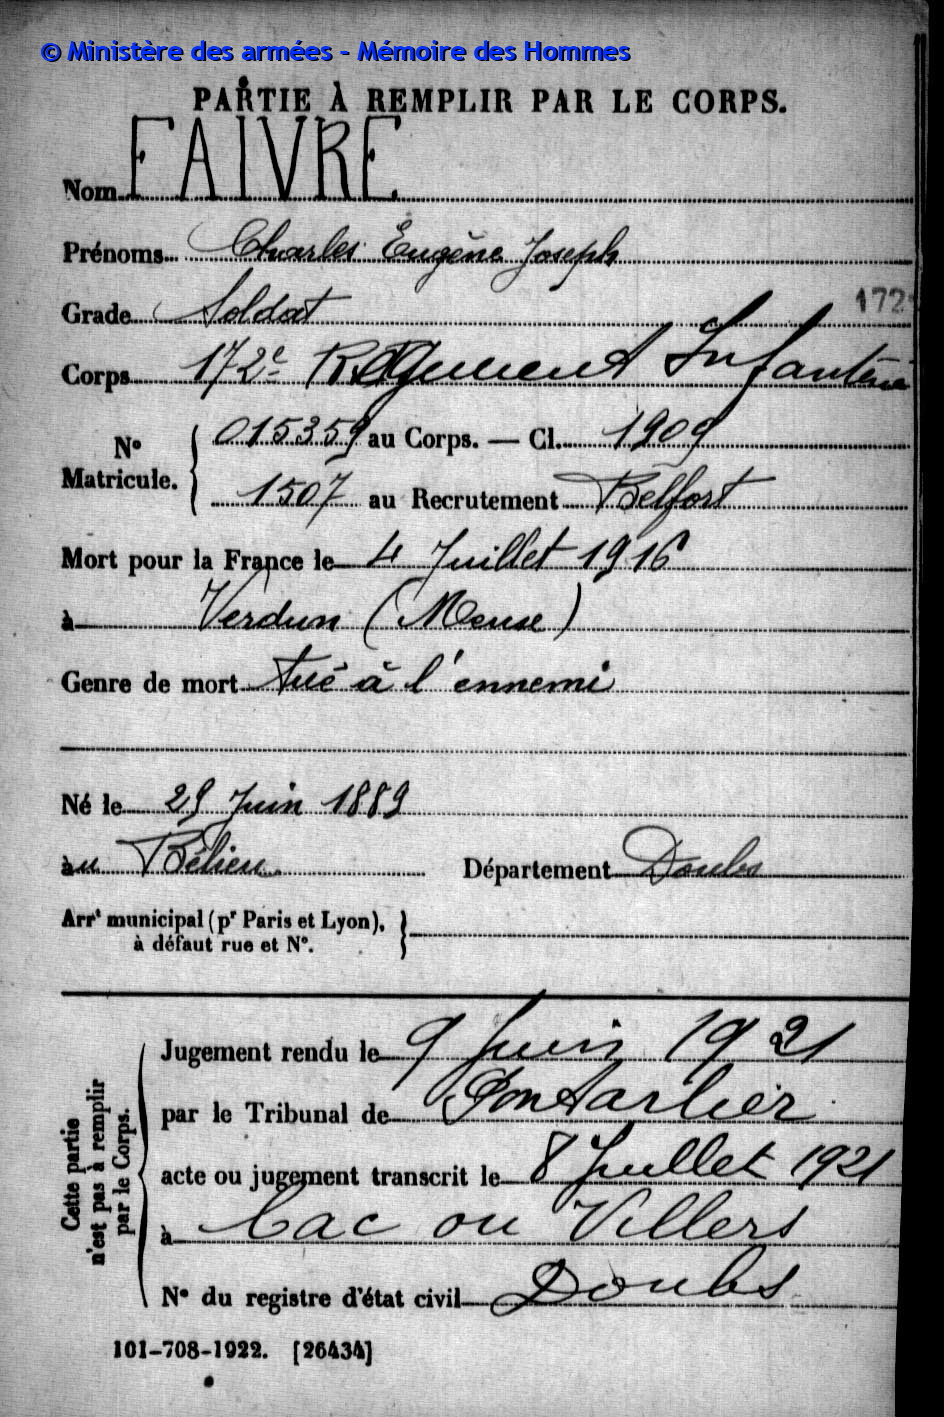 © Ministère des armées - Mémoire des Hommes
PARTIE À REMPLIR PAR LE CORPS.
Nom FAIVRE
Prénoms Charles Eugène Joseph
Grade Soldat
172
Corps 172e Régiment Infanterie
N° Matricule. 015359 au Corps. — Cl. 1909
1507 au Recrutement Belfort
Mort pour la France le 4 Juillet 1916
à Verdun (Meuse)
Genre de mort tué à l'ennemi
Né le 29 Juin 1889
àu Bélieu Département Doubs
Arrt municipal (pr Paris et Lyon),
à défaut rue et N°.
Cette partie
n'est pas à remplir
par le Corps.
Jugement rendu le 9 Juin 1921
par le Tribunal de Pontarlier
acte ou jugement transcrit le 8 Juillet 1921
à Lac ou Villers
N° du registre d'état civil Doubs
101-708-1922. [26434]